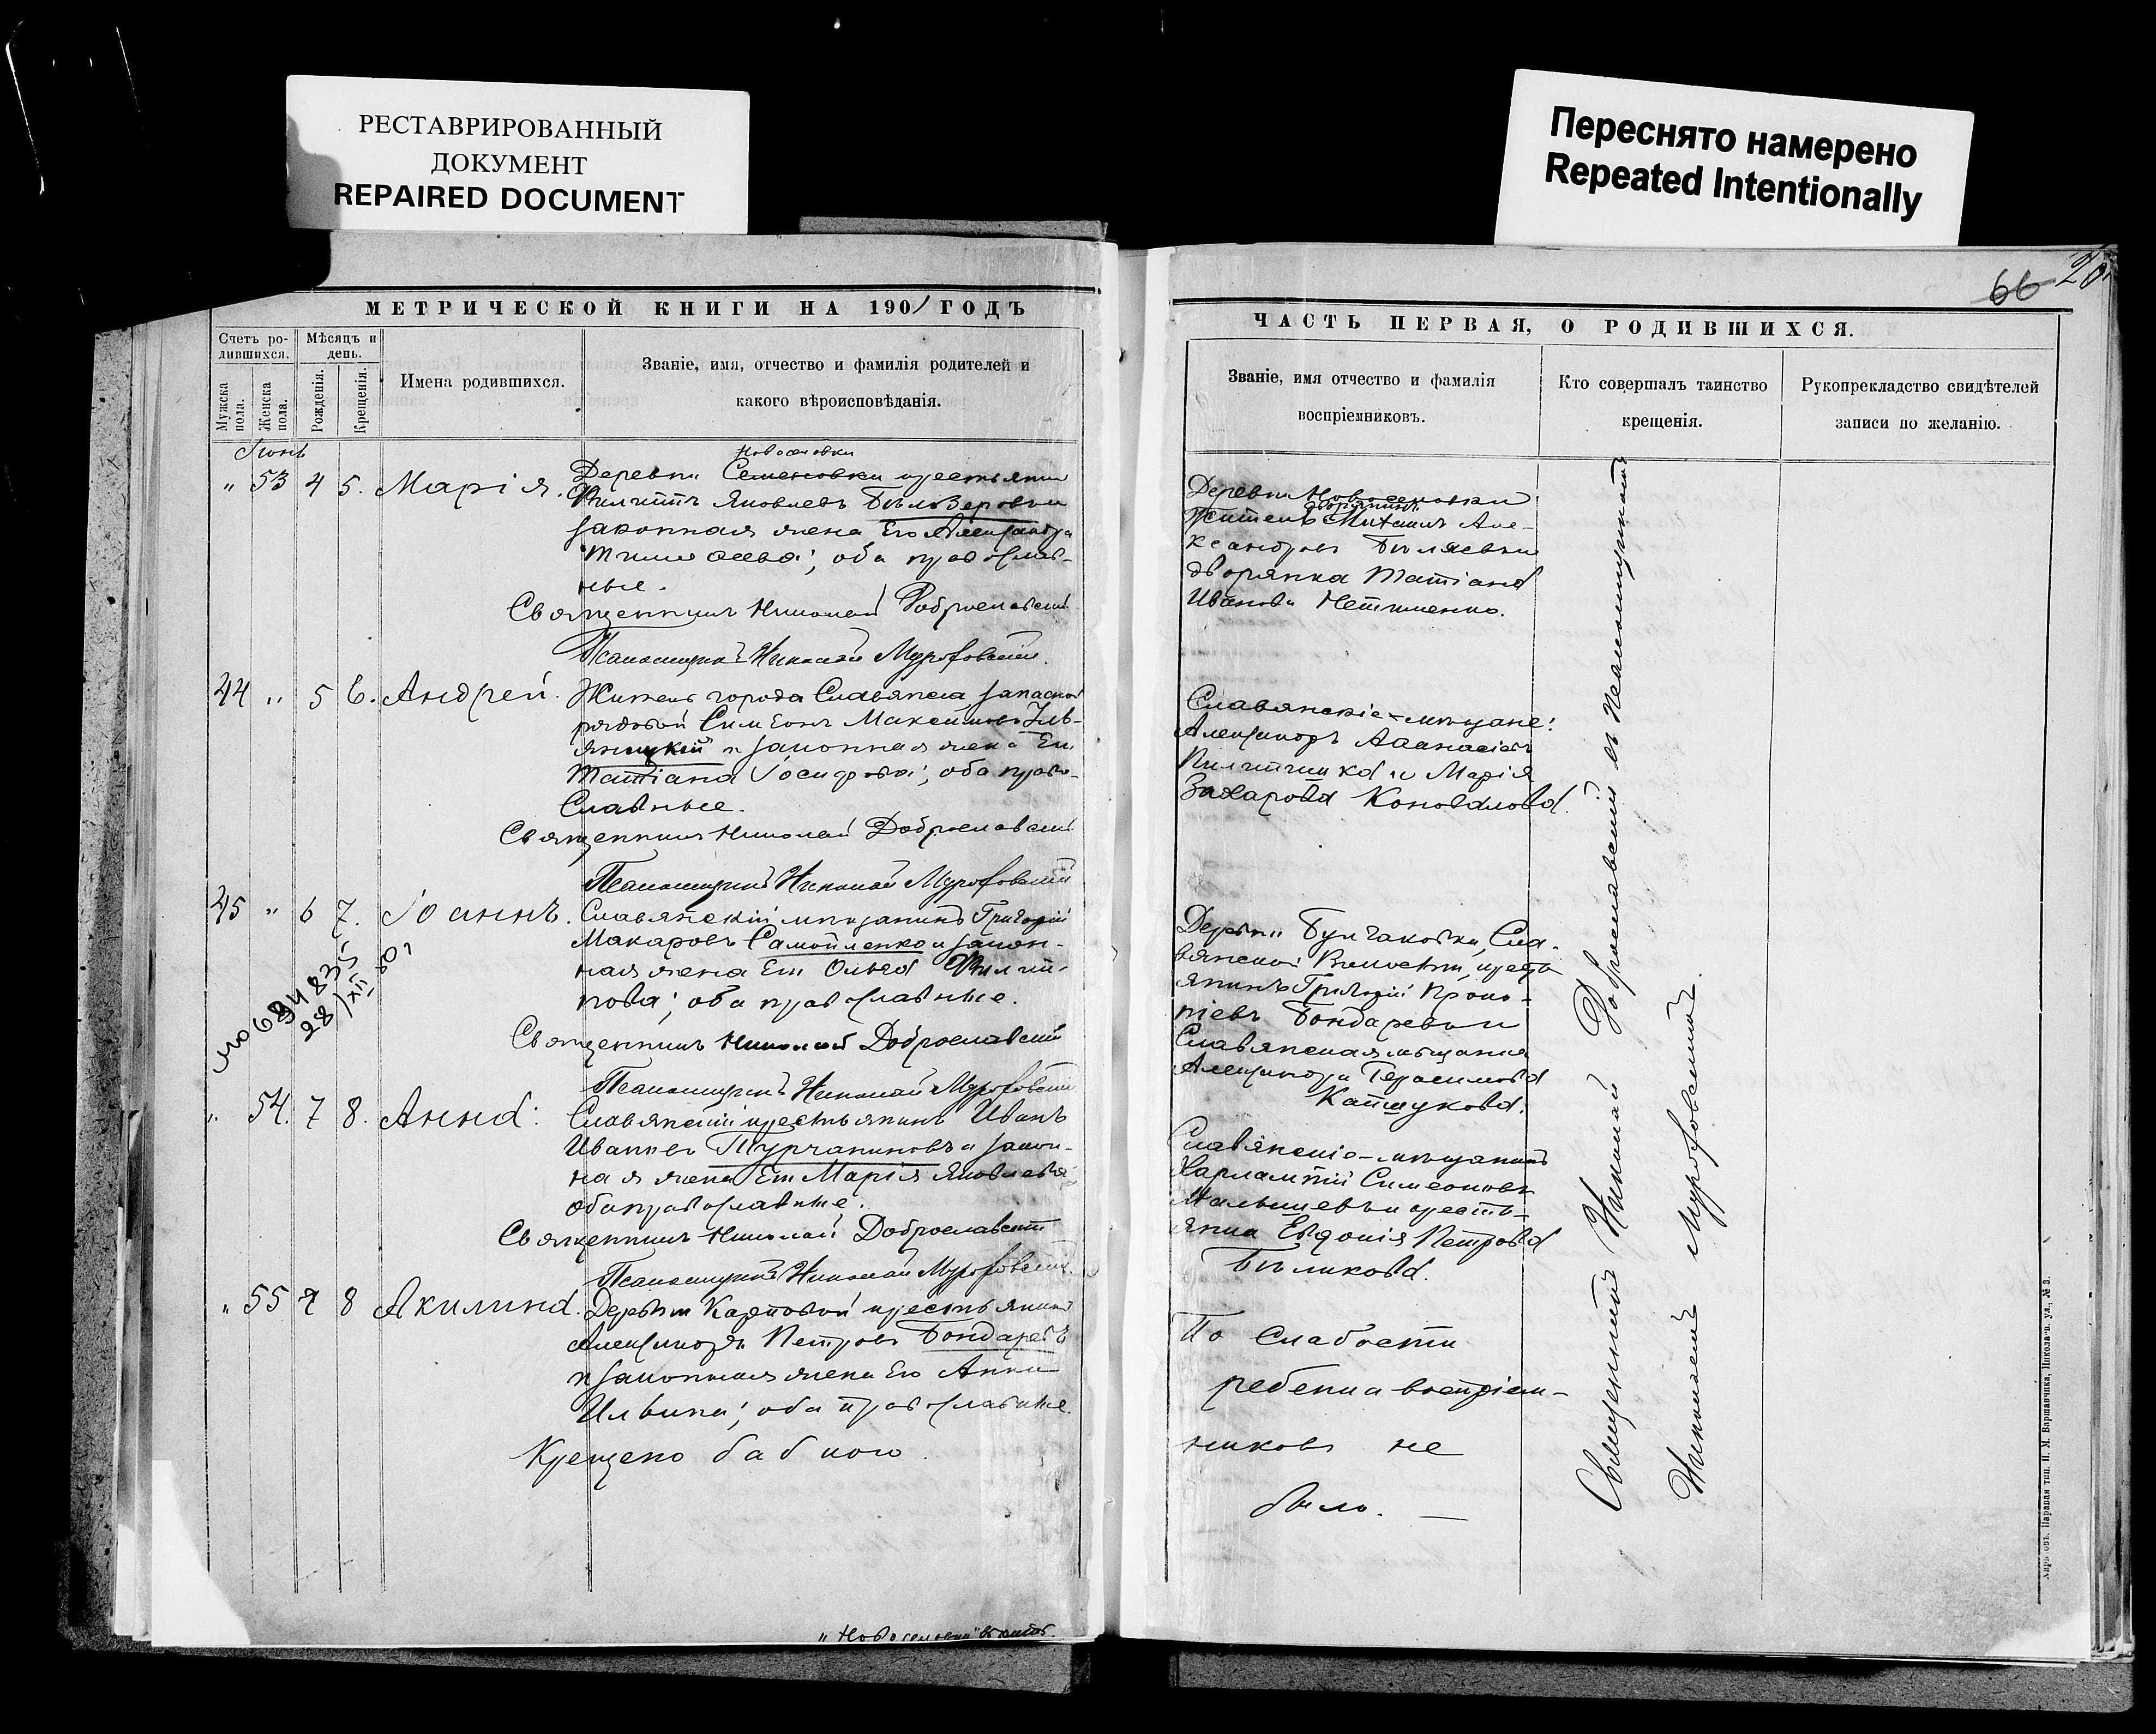 РЕСТАВРИРОВАННЫЙ
ДОКУМЕНТ
REPAIRED DOCUMENT
Переснято намерено
Repeated Intentionally
МЕТРИЧЕСКОЙ КНИГИ НА 1901 ГОДЪ
Счетъ ро-
дившихся.
Мѣсяцъ и
день.
Мужска
пола.
Женска
пола.
Рожденія.
Крещенія.
Имена родившихся.
Званіе, имя, отчество и фамилія родителей и
какого вѣроисповѣданія.
Іюнь
Новоселовки
" 53 4 5. Марія. Деревни Семеновки крестьянинъ
Филиппъ Яковлевъ
законная жена Его Александра
оба православ-
ные.
Священникъ Николай Доброславскій
Псаломщикъ Николай
44 " 5 6. Андрей. Житель города Славянска запасной
рядовой Симеонъ Максимовъ
и законная жена Его
Татіана Іосифова; оба право-
славные.
Священникъ Николай Доброславскій
Псаломщикъ Николай
45 " 6 7. Іоаннъ. Славянскій мѣщанинъ Григорій
Макаровъ Самойленко и закон-
ная жена Его Ольга Филип-
пова; оба православные.
Священникъ Николай Доброславскій
Псаломщикъ Николай
" 54. 7 8. Анна. Славянскій крестьянинъ Иванъ
Ивановъ Турчаниновъ и закон-
ная жена Его Марія Яковлева
оба православные.
Священникъ Николай Доброславскій
Псаломщикъ Николай
" 55 7 8 Акилина. Деревни Карповой крестьянинъ
Александръ Петровъ Бондаревъ
и законная жена Его Анна
Ильина; оба православные.
Крещено бабкою.
66 20
ЧАСТЬ ПЕРВАЯ, О РОДИВШИХСЯ.
Званіе, имя отчество и фамилія
воспріемниковъ.
Кто совершалъ таинство
крещенія.
Рукоприкладство свидѣтелей
записи по желанію.
Деревни Новоселовки
дворянинъ
Житель Михаилъ Але-
ксандровъ Бѣляевъ и
дворянка Татіана
Иванова
Славянскіе мѣщане:
Александръ Аѳанасіевъ
и Марія
Захарова Коновалова.
Деревни Сла-
вянской Волости, кресть-
янинъ Григорій Проко-
піевъ Бондаревъ и
Славянская мѣщанка
Александра Герасимова
Славянскіе мѣщанинъ
Харлампій Симеоновъ
Малышевъ и кресть-
янка Евдокія Петрова
Бѣликова.
По слабости
ребенка воспріем-
никовъ не
было. —
Священникъ Николай Доброславскій съ Псаломщикомъ
Николаемъ